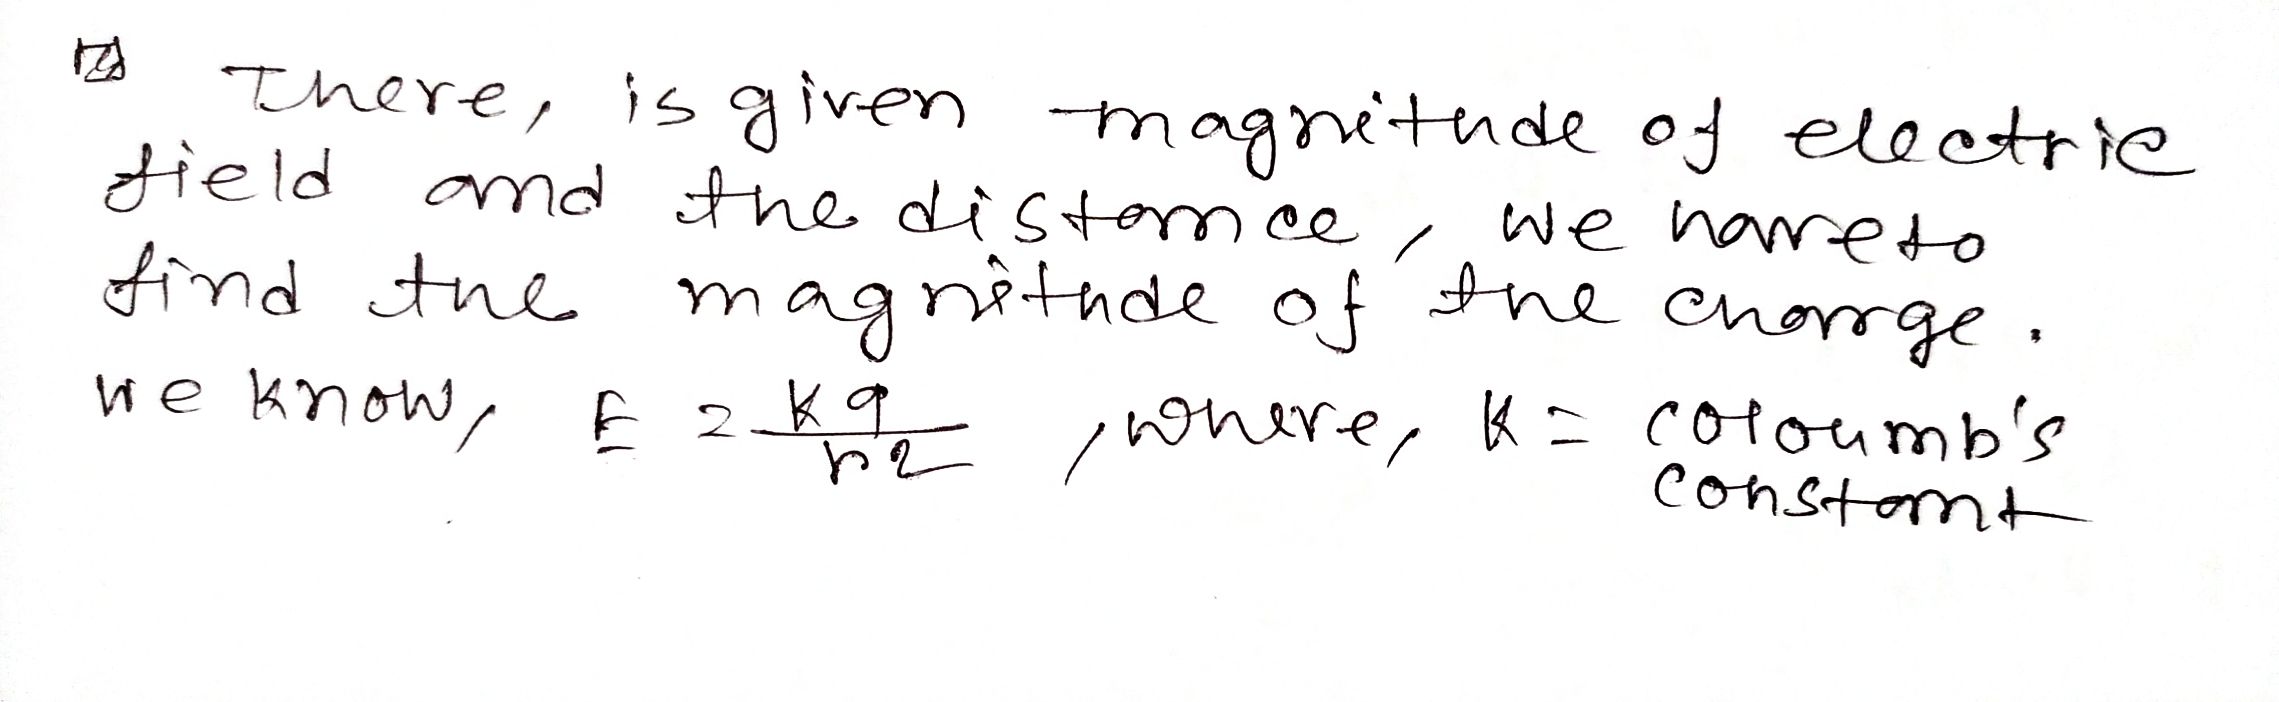 There, is given magnitude of electric
field and the distance, we have to
find the magnitude of the charge.
we know, E = kq/r2 , where, K = coloumb's
constant